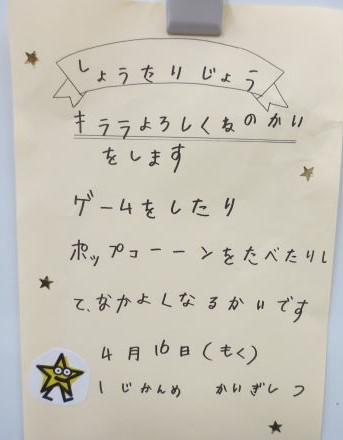 しょうたりじょう
キララよろしくねのかい
をします
ゲームをしたり
ポップコーーンをたべたりし
て、なかよくなるかいです
4月16日(もく)
1じかんめ かいぎしつ